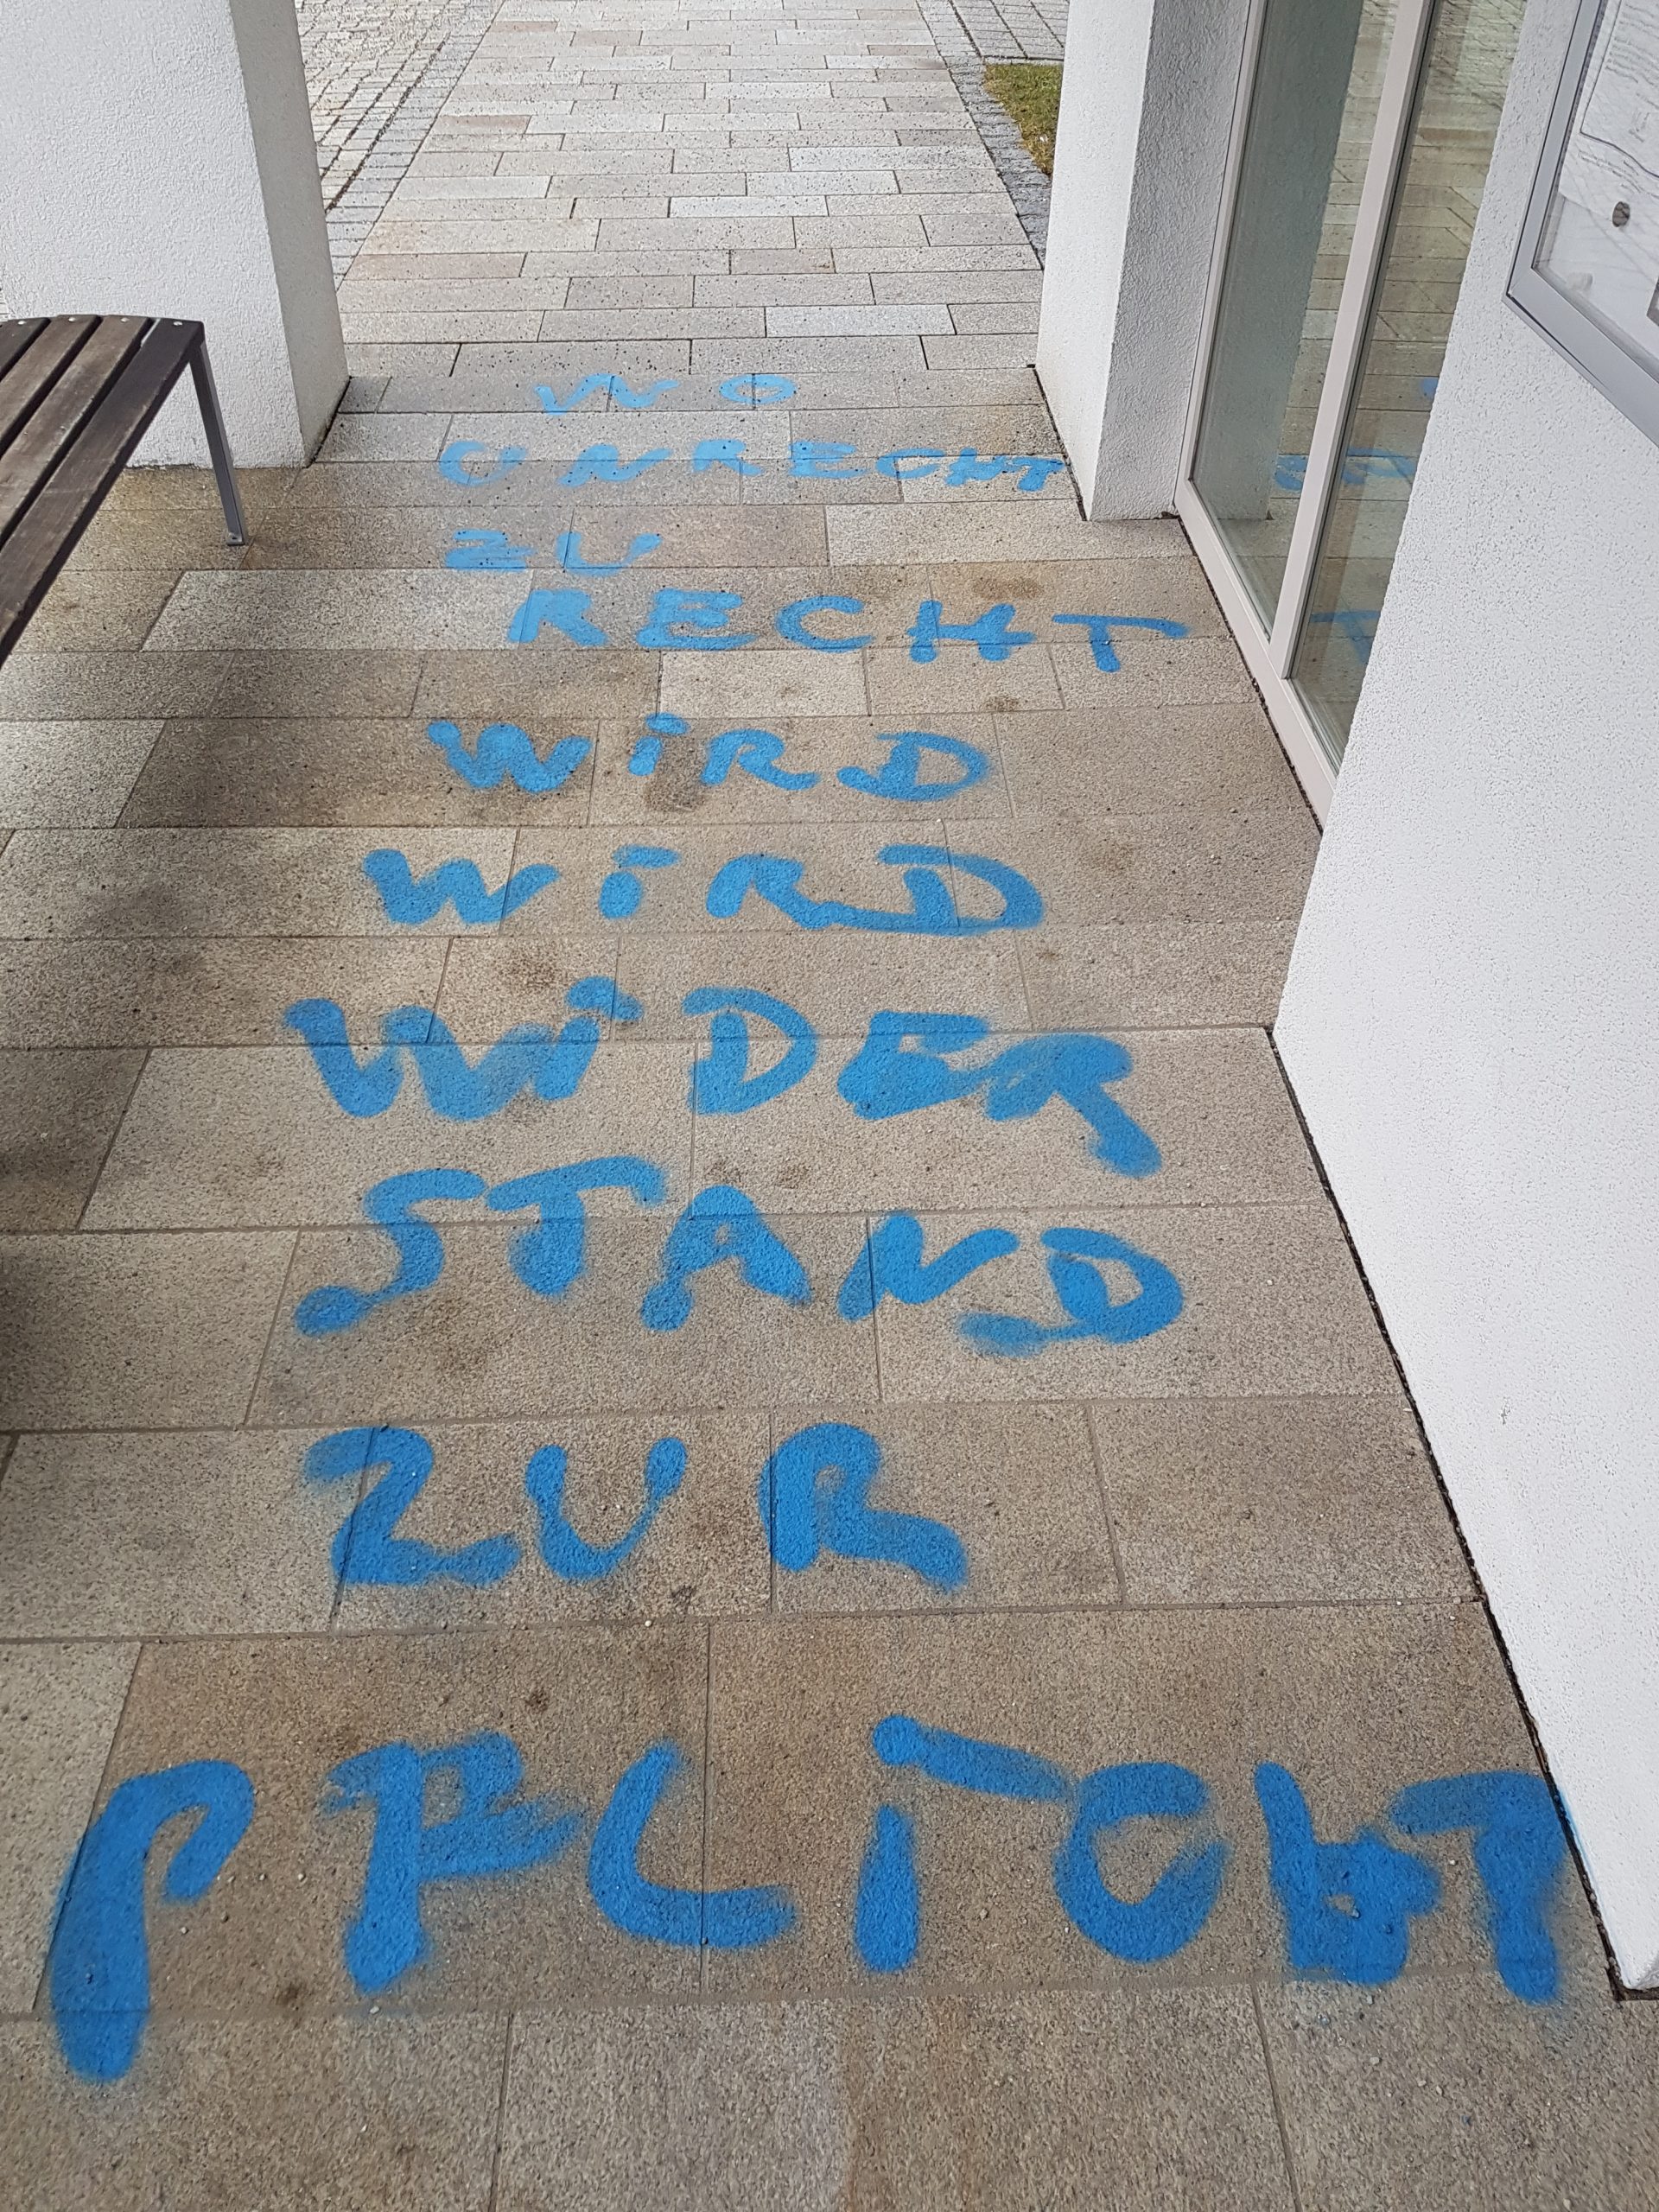 WO
UNRECHT
ZU
RECHT
WiRD
WiRD
WiDER
STAND
ZUR
PFLiCHT